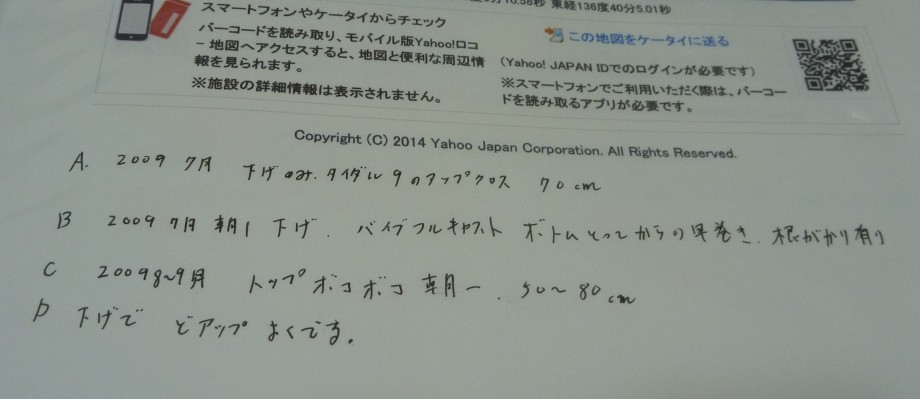 10.58秒 東経136度40分5.01秒
スマートフォンやケータイからチェック
バーコードを読み取り、モバイル版Yahoo!ロコ
- 地図へアクセスすると、地図と便利な周辺情
報を見られます。
※施設の詳細情報は表示されません。
この地図をケータイに送る
(Yahoo! JAPAN IDでのログインが必要です)
※スマートフォンでご利用いただく際は、バーコー
ドを読み取るアプリが必要です。
Copyright (C) 2014 Yahoo Japan Corporation. All Rights Reserved.
A. 2009 7月 下げのみ. タイダル9のアップクロス 70cm
B 2009 7月 朝1 下げ. バイブフルキャスト ボトムとってからの早巻き. 根がかり有り
C 2009 8~9月 トップ ボコボコ 朝一. 50~80cm
D 下げで どアップ よくでる.